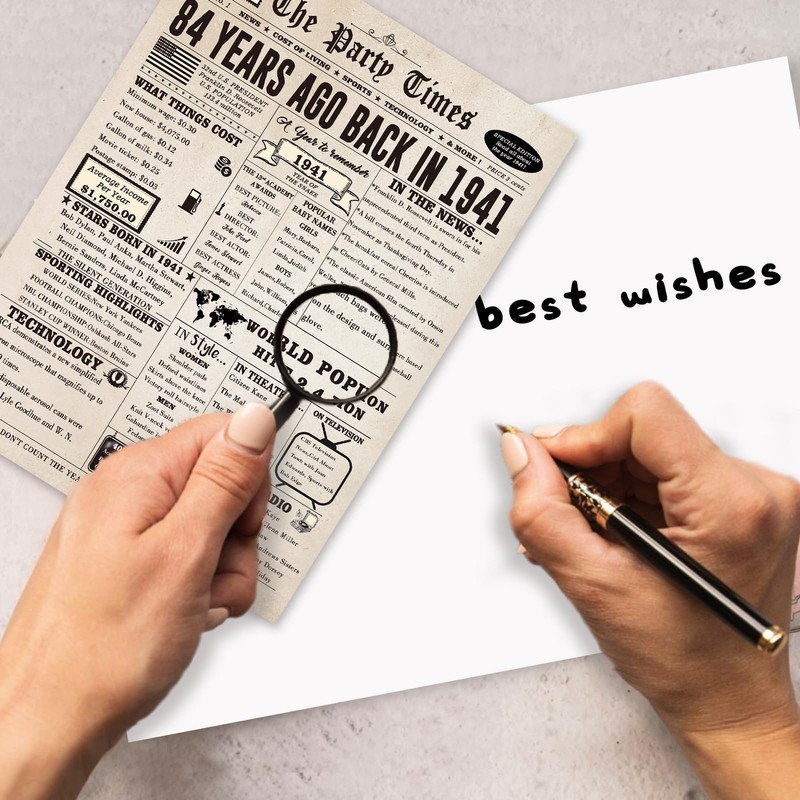 The Party Times
NEWS ★ COST OF LIVING ★ SPORTS ★ TECHNOLOGY ★ & MORE!
PRICE 5 cents
84 YEARS AGO BACK IN 1941
SPECIAL EDITION
Read all about
the year 1941!
32nd U.S. PRESIDENT
Franklin D. Roosevelt
U.S. POPULATION
133.4 million
WHAT THINGS COST
Minimum wage: $0.30
New house: $4,075.00
Gallon of gas: $0.12
Gallon of milk: $0.34
Movie ticket: $0.25
Postage stamp: $0.03
Average Income
Per Year
$1,750.00
★ STARS BORN IN 1941 ★
Bob Dylan, Paul Anka, Martha Stewart,
Neil Diamond, Michael D. Higgins,
Bernie Sanders, Linda McCartney
THE SILENT GENERATION
SPORTING HIGHLIGHTS
WORLD SERIES: New York Yankees
FOOTBALL CHAMPIONS: Chicago Bears
NBL CHAMPIONSHIP: Oshkosh All-Stars
STANLEY CUP WINNER: Boston Bruins
TECHNOLOGY
RCA demonstrates a new simplified
ron microscope that magnifies up to
times.
disposable aerosol cans were
Lyle Goodhue and W. N.
DON'T COUNT THE YEA
A Year to remember
1941
YEAR OF
THE SNAKE
THE 13th ACADEMY
AWARDS
BEST PICTURE:
Rebecca
BEST
DIRECTOR:
John Ford
BEST ACTOR:
James Stewart
BEST ACTRESS
Ginger Rogers
POPULAR
BABY NAMES
GIRLS
Mary, Barbara,
Patricia, Carol,
Linda, Judith
BOYS
James, Robert,
John, William,
Richard, Charles
IN THE NEWS...
*Franklin D. Roosevelt is sworn in for his
unprecedented third term as President.
*A bill creates the fourth Thursday in
November as Thanksgiving Day.
*The breakfast cereal Cheerios is introduced
CheeriOats by General Mills.
*The classic American film created by Orson
Welles
released during this
ach bags were
on the design and sur
glove.
WORLD POP ION
HIT 2.4 ION
IN Style...
WOMEN
Shoulder pads
Defined waistlines
Skirts above the knee
Victory roll hairstyle
MEN
Zoot Suits
Knit V-neck
IN THEAT
Citizen Kane
The Mal
ON TELEVISION
CBS Television
News, Girl About
Town with Joan
Edwards, Sports with
Bob Edge
DIO
Kaye
Glenn Miller
Andrews Sisters
Dorsey
liday
best wishes